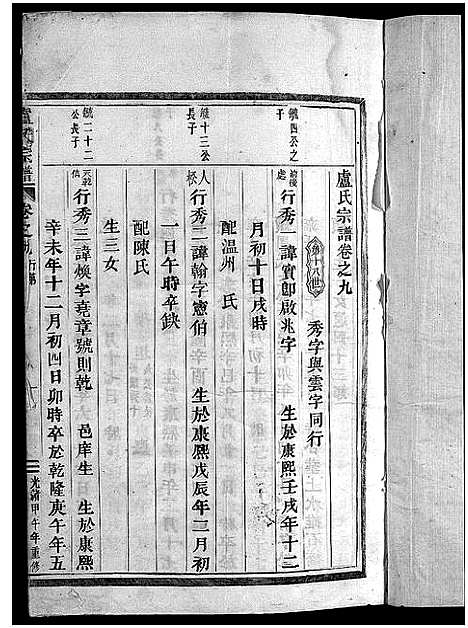 盧氏宗譜卷之九
第十八世
秀字與雲字同行
號四公之
子
行秀一諱實卽啟兆字 生於康熙壬戌年十二
月初十日戌時
配温州 氏
號十三公
長子
行秀二諱翰字憲伯 生於康熙戊辰年二月初
一日午時卒缺
配陳氏
生三女
號二十二
公長子
行秀三諱煥字堯章號則乾 邑庠生 生於康熙
辛未年十二月初四日卯時卒於乾隆庚午年五
宗譜
卷之九
行第
一
光緒甲午年重修